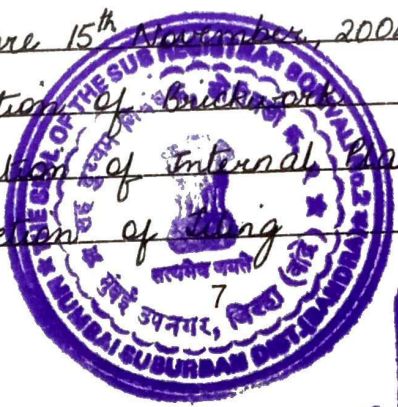 re 15th November, 200
tion of Brickwork
tion of Internal Pla
tion of Tiling
7
THE SEAL OF THE SUB REGISTRAR BORIVALI
सह दुय्यम
सत्यमेव जयते
मुंबई उपनगर, जिल्हा (बांद्रे)
MUMBAI SUBURBAN DIST. (BANDRA)